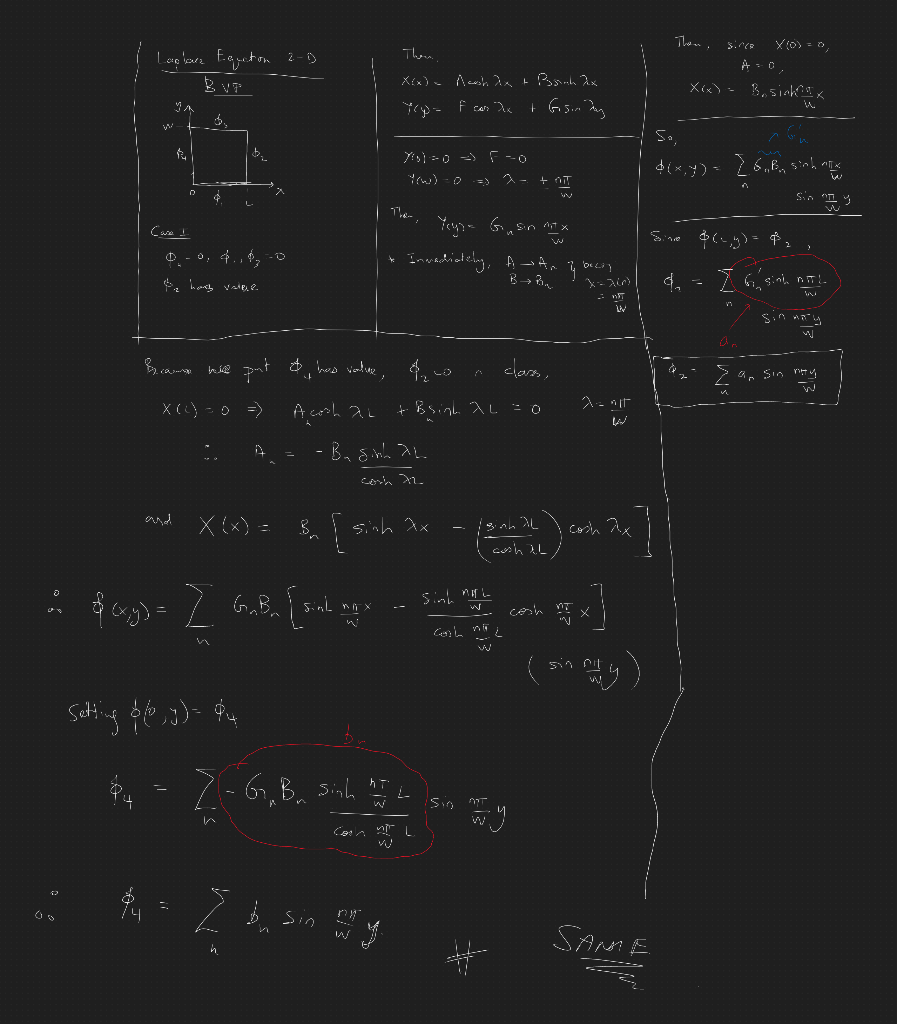 Laplace Equation 2-D
BVP
y
W
ϕ3
ϕ4
ϕ2
0
ϕ1
L
x
Case I
ϕ4 = 0, ϕ1, ϕ3 = 0
ϕ2 has value
Then,
X(x) = A cosh λx + B sinh λx
Y(y) = F cos λx + G sin λy
Y(0) = 0 ⇒ F = 0
Y(w) = 0 ⇒ λ = + nπ/W
Then, Y(y) = Gn sin nπ/W x
* Immediately, A → An
B → Bn
λ = λ(n)
= nπ/W
Then, since X(0) = 0,
A = 0,
X(x) = Bn sinh nπ/W x
So,
G'n
ϕ(x,y) = Σn GnBn sinh nπx/W
sin nπ/W y
Since ϕ(L,y) = ϕ2,
ϕ2 = Σn G'n sinh nπL/W
sin nπy/W
an
ϕ2 = Σn an sin nπy/W
Because we put ϕ4 has value, ϕ2=0 in class,
X(L) = 0 ⇒ An cosh λL + Bn sinh λL = 0 λ = nπ/W
∴ An = - Bn sinh λL / cosh λL
and X(x) = Bn [ sinh λx - (sinh λL / cosh λL) cosh λx ]
∴ ϕ(x,y) = Σn GnBn [ sinh nπ/W x - sinh nπL/W / cosh nπ/W L cosh nπ/W x ]
( sin nπ/W y )
Setting ϕ(0,y) = ϕ4
bn
ϕ4 = Σn - GnBn sinh nπ/W L / cosh nπ/W L sin nπ/W y
∴ ϕ4 = Σn bn sin nπ/W y
# SAME